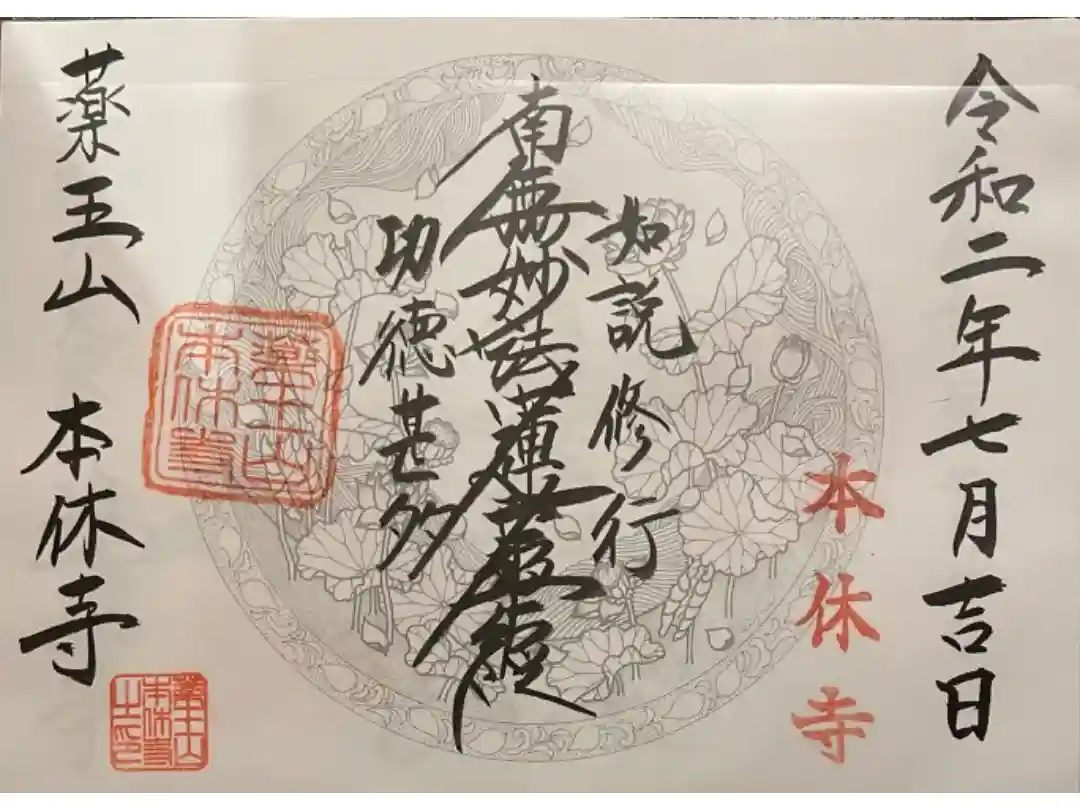 令和二年七月吉日
本休寺
如説修行
南無妙法蓮華經
功徳甚多
薬王山
本休寺
薬王山 本休寺
薬王山
本休寺
之印